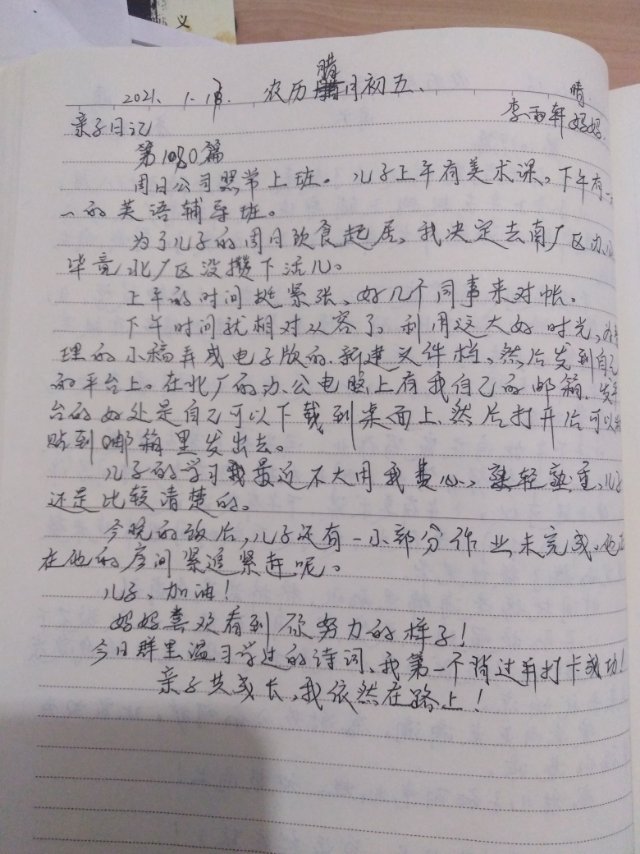 义
2021. 1.17. 农历腊月初五. 晴.
亲子日记 李雨轩妈妈
第1080篇
周日公司照常上班。儿子上午有美术课,下午有一
一的英语辅导班。
为了儿子的周日饮食起居,我决定去南厂区办
毕竟北厂区没攒下活儿。
上午的时间挺紧张,好几个同事来对帐。
下午时间就相对从容了,利用这大好时光,
理的小稿弄成电子版的,新建文件档,然后发到自己
的平台上。在北厂的办公电脑上有我自己的邮箱,发平
台的好处是自己可以下载到桌面上,然后打开后可以
贴到邮箱里发出去。
儿子的学习我最近不大用我费心,孰轻孰重,儿子
还是比较清楚的。
今晚的饭后,儿子还有一小部分作业未完成,他
在他的房间紧追紧赶呢。
儿子,加油!
妈妈喜欢看到你努力的样子!
今日群里温习学过的诗词,我第一个背过并打卡成功!
亲子共成长,我依然在路上!